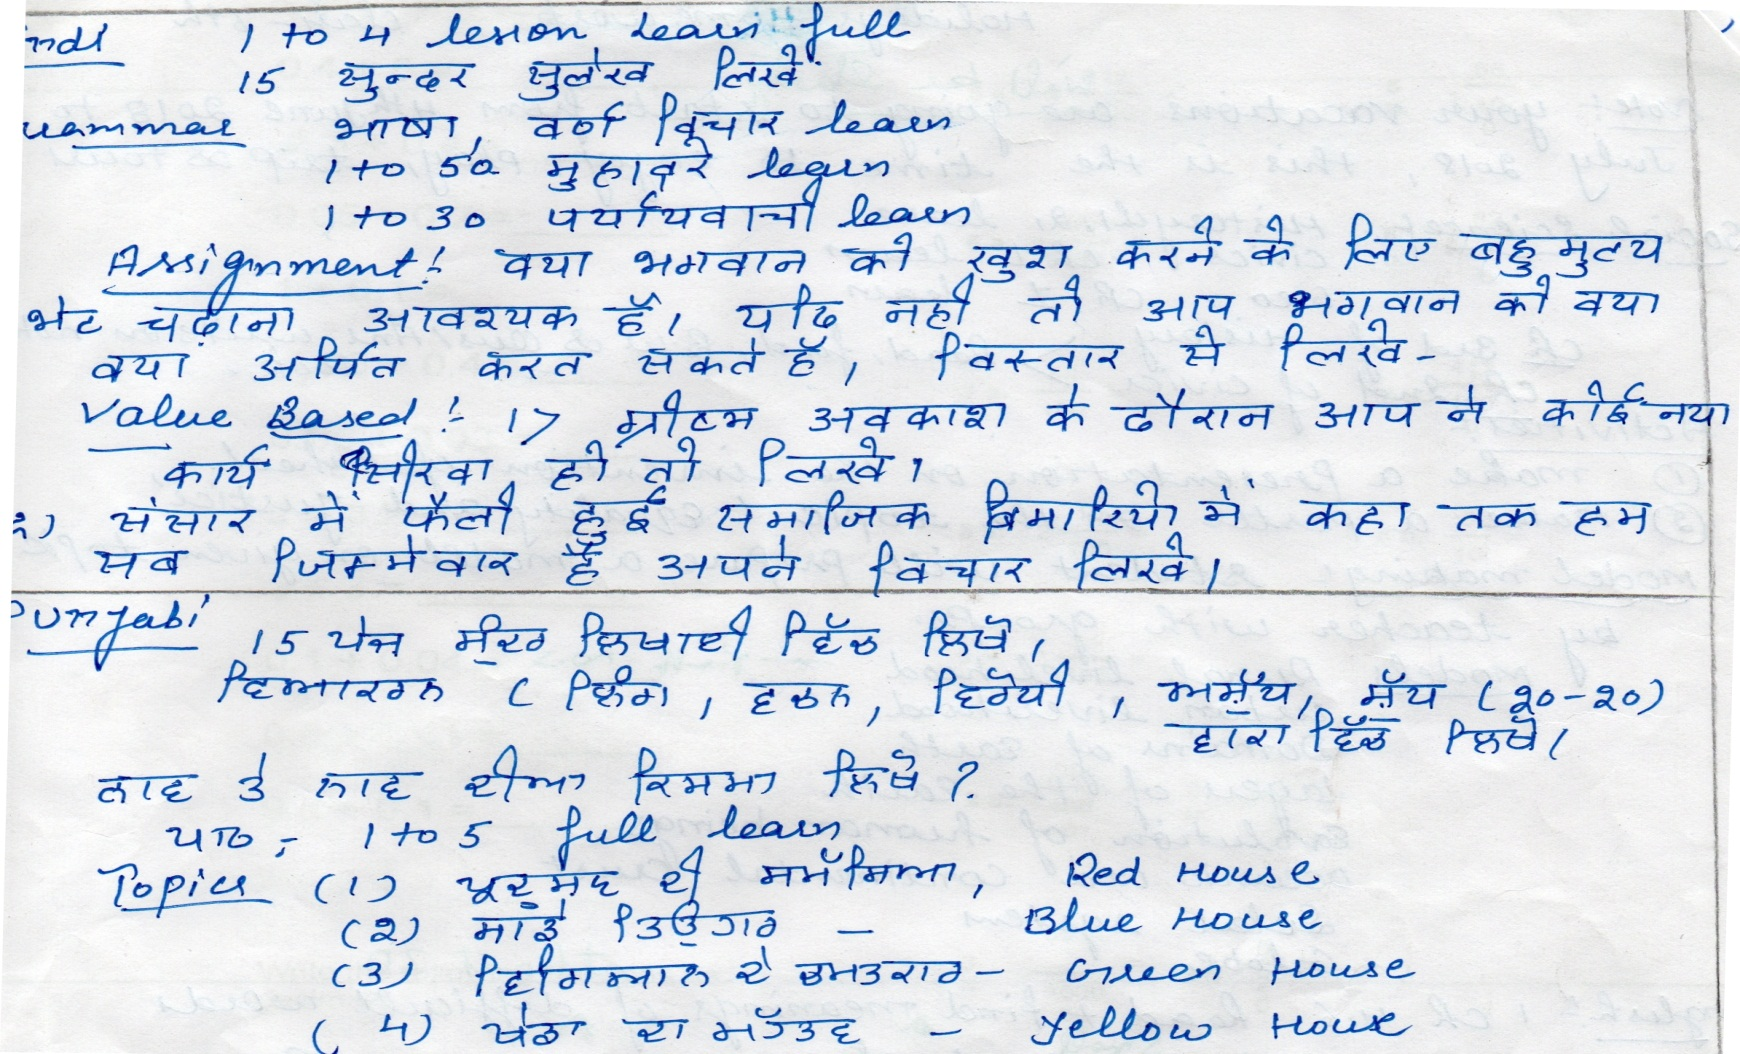 1 to 4 lesson Learn full
15 सुन्दर सुलेख लिखें
भाषा, वर्ण विचार learn
1 to 50 मुहावरे learn
1 to 30 पर्यायवाची learn
Assignment: क्या भगवान को खुश करने के लिए बहुमुल्य
भेट चढ़ाना आवश्यक हैं। यदि नही तो आप भगवान को क्या
क्या अर्पित करत सकते हैं, विस्तार से लिखे-
Value Based :- 1) ग्रीष्म अवकाश के दौरान आप ने कोई नया
कार्य सिखा हो तो लिखे।
2) संसार में फैली हुई समाजिक बिमारियो में कहा तक हम
सब जिम्मेवार हैं अपने विचार लिखे।
Punjabi
15 ਪੇਜ ਸੁੰਦਰ ਲਿਖਾਈ ਵਿੱਚ ਲਿਖੋ,
ਵਿਆਕਰਨ ( ਲਿੰਗ, ਵਚਨ, ਵਿਰੋਧੀ, ਅਸ਼ੁੱਧ, ਸ਼ੁੱਧ (20-20)
ਵਿੱਚ ਲਿਖੋ।
ਨਾਂਵ ਤੇ ਨਾਂਵ ਦੀਆ ਕਿਸਮਾ ਲਿਖੋ?
ਪਾਠ :- 1 to 5 full learn
Topics (1) ਪ੍ਰਦੂਸ਼ਣ ਦੀ ਸਮੱਸਿਆ, Red House
(2) ਸਾਡੇ ਤਿਉਹਾਰ — Blue House
(3) ਵਿਗਿਆਨ ਦੇ ਚਮਤਕਾਰ - Green House
(4) ਖੇਡਾ ਦਾ ਮਹੱਤਵ - Yellow House